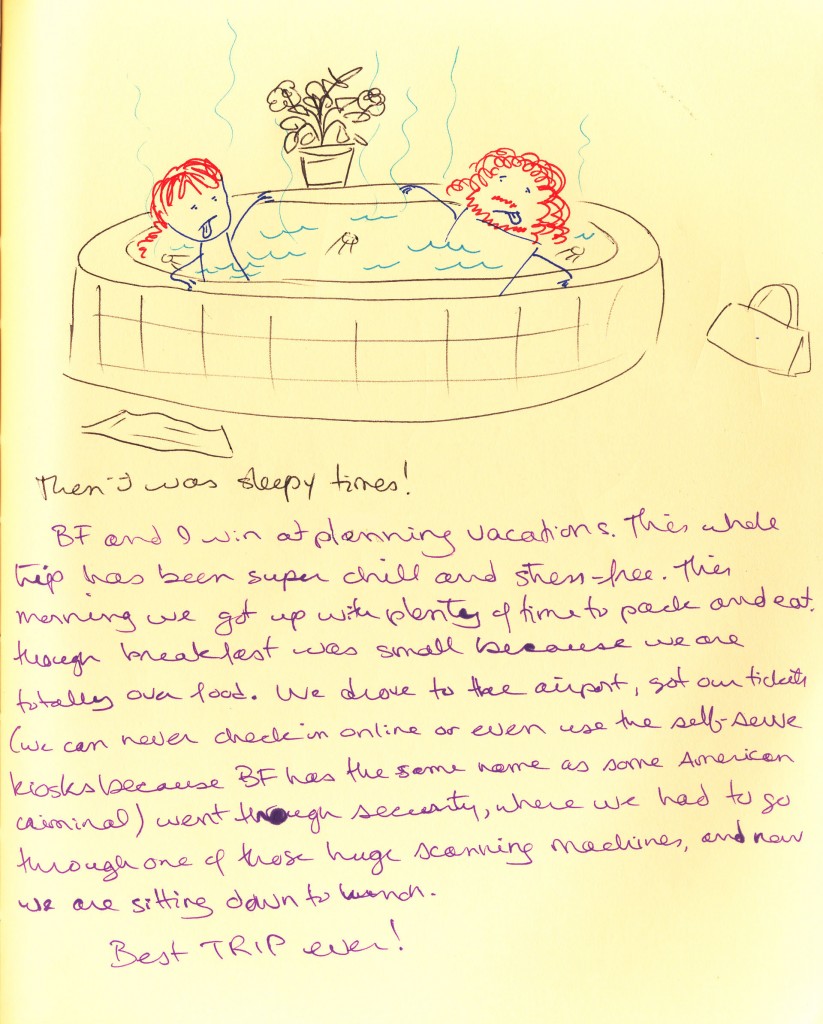 Then it was sleepy times!
BF and I win at planning vacations. This whole
trip has been super chill and stress-free. This
morning we got up with plenty of time to pack and eat.
though breakfast was small because we are
totally over food. We drove to the airport, got our tickets
(we can never check in online or even use the self-serve
kiosks because BF has the same name as some American
criminal) went through security, where we had to go
through one of those huge scanning machines, and now
we are sitting down to lunch.
Best TRIP ever!